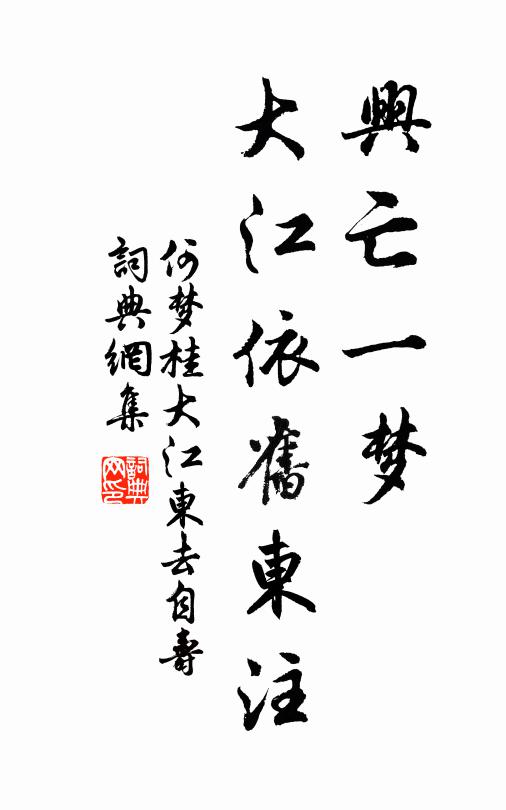 興亡一梦
大江依舊東注
何梦桂大江東去自壽
詞典網集
詞典網印